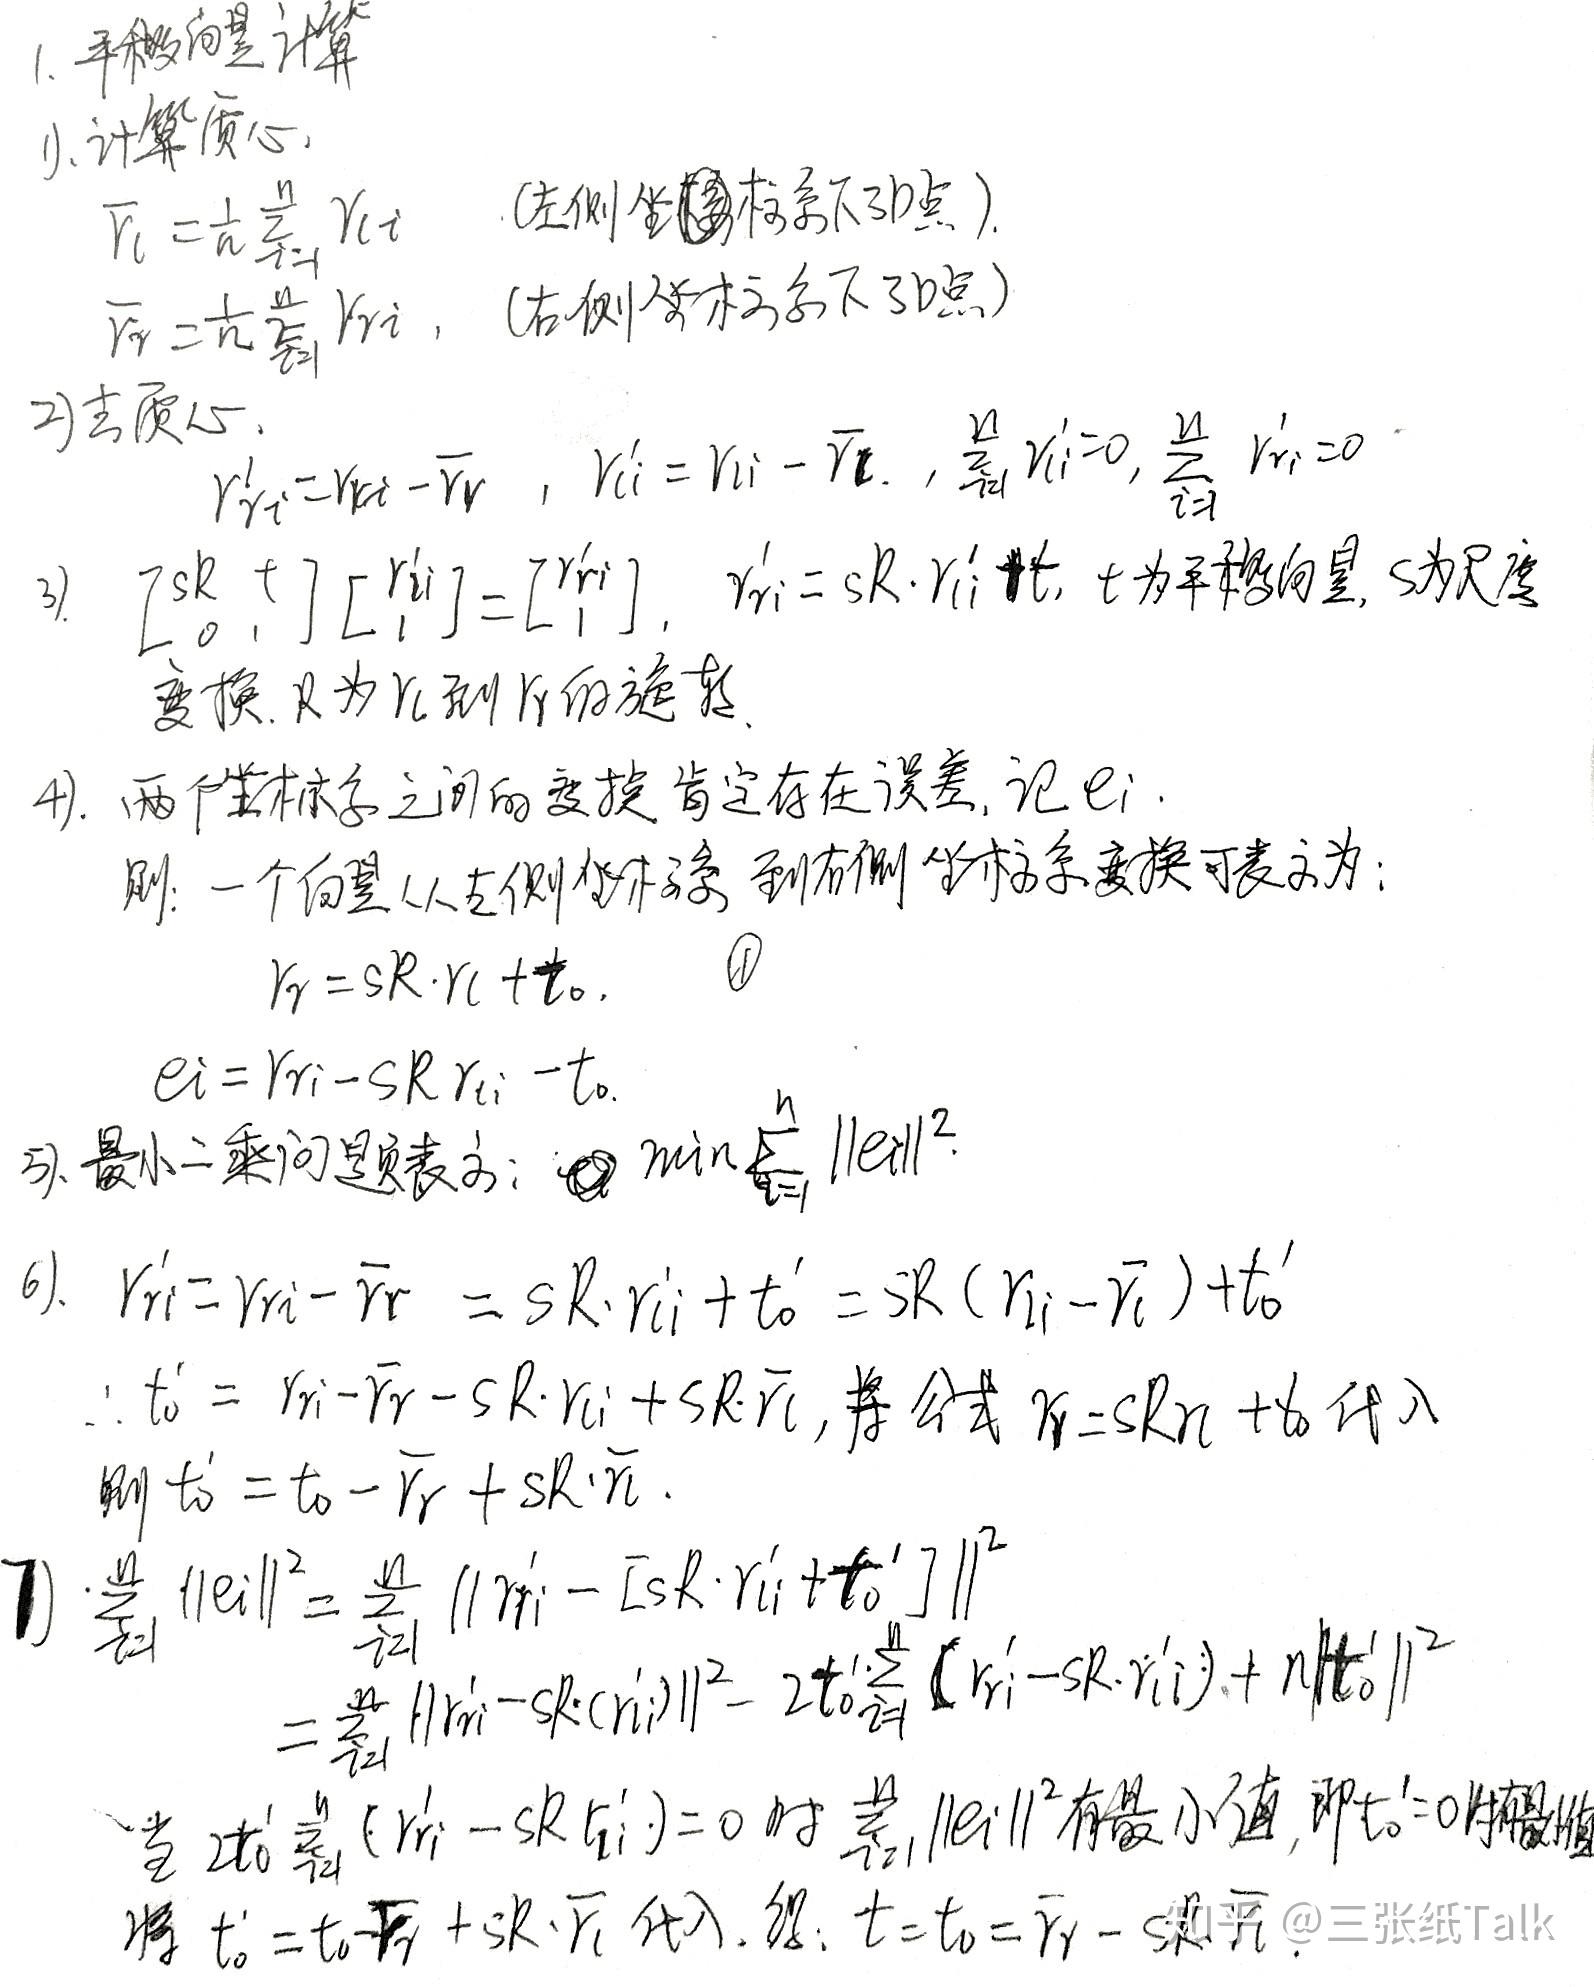 1. 平移向量计算
1). 计算质心.
r̄_l = 1/n Σ_{i=1}^{n} r_{li} (左侧坐标系下3D点).
r̄_r = 1/n Σ_{i=1}^{n} r_{ri}, (右侧坐标系下3D点)
2) 去质心.
r'_{ri} = r_{ri} - r̄_r , r'_{li} = r_{li} - r̄_l. , Σ_{i=1}^{n} r'_{li} = 0, Σ_{i=1}^{n} r'_{ri} = 0
3). [sR t; 0 1] [r'_{li}; 1] = [r'_{ri}; 1], r'_{ri} = sR·r'_{li} + t, t为平移向量, s为尺度
变换. R为r_l到r_r的旋转.
4). 两个坐标系之间的变换肯定存在误差, 记 e_i.
则: 一个向量从左侧坐标系到右侧坐标系变换可表示为:
r_r = sR·r_l + t_0. ①
e_i = r_{ri} - sR r_{li} - t_0.
5). 最小二乘问题表示: min Σ_{i=1}^{n} ||e_i||².
6). r'_{ri} = r_{ri} - r̄_r = sR·r'_{li} + t'_0 = sR(r_{li} - r̄_l) + t'_0
∴ t'_0 = r_{ri} - r̄_r - sR·r_{li} + sR·r̄_l, 将公式 r_r = sR r_l + t_0 代入
则 t'_0 = t_0 - r̄_r + sR·r̄_l.
7) Σ_{i=1}^{n} ||e_i||² = Σ_{i=1}^{n} ||r'_{ri} - [sR·r'_{li} + t'_0]||²
= Σ_{i=1}^{n} ||r'_{ri} - sR·(r'_{li})||² - 2t'_0 Σ_{i=1}^{n} (r'_{ri} - sR·r'_{li}) + n||t'_0||²
当 2t'_0 Σ_{i=1}^{n} (r'_{ri} - sR r'_{li}) = 0 时 Σ_{i=1}^{n} ||e_i||² 有最小值, 即 t'_0 = 0 时有最小值
将 t'_0 = t_0 - r̄_r + sR·r̄_l 代入. 得: t = t_0 = r̄_r - sR·r̄_l.
知乎 @三张纸Talk